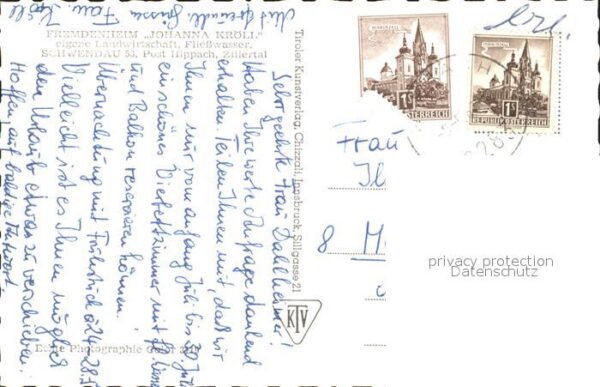 FREMDENHEIM „JOHANNA KRÖLL“
eigene Landwirtschaft, Fließwasser,
SCHWENDAU 53, Post Hippach, Zillertal
Sehr geehrte Frau
Haben Ihre werte Anfrage dankend
erhalten. Teilen Ihnen mit daß wir
Ihnen nur vom anfang Juli bis
ein schönes Vierbettzimmer mit
und Balkon reservieren können.
Übernachtung mit Frühstück a 24.-
Vielleicht ist es Ihnen möglich
den Urlaub etwas zu verschieben.
Hoffe auf baldige Antwort
Mit freundl. Grüssen Frau Kröll
Tiroler Kunstverlag, Chizzali, Innsbruck, Sillgasse 21
KTV
Echte Photographie
MARIAZELL
1S
REPUBLIK ÖSTERREICH
1S
REPUBLIK ÖSTERREICH
Frau
8
privacy protection
Datenschutz